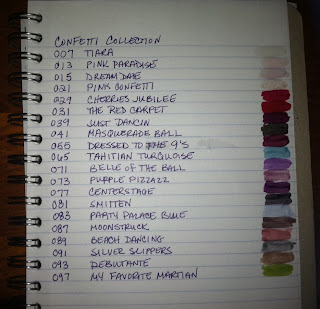 CONFETTI COLLECTION
007 TIARA
013 PINK PARADISE
015 DREAM DATE
021 PINK CONFETTI
029 CHERRIES JUBILEE
031 THE RED CARPET
039 JUST DANCIN
041 MASQUERADE BALL
055 DRESSED TO THE 9'S
065 TAHITIAN TURQUOISE
071 BELLE OF THE BALL
073 PURPLE PIZZAZZ
077 CENTERSTAGE
081 SMITTEN
083 PARTY PALACE BLUE
087 MOONSTRUCK
089 BEACH DANCING
091 SILVER SLIPPERS
093 DEBUTANTE
097 MY FAVORITE MARTIAN